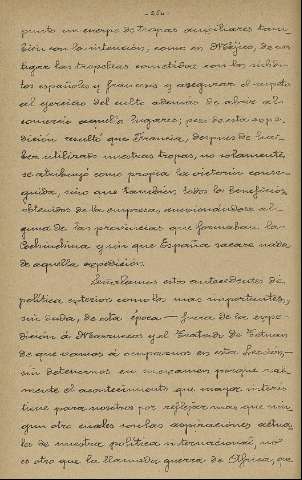 -260-
punto un cuerpo de tropas auxiliares tam-
bién con la intención, como en Méjico, de cas
tigar las tropelías cometidas con los súbdi-
tos españoles y franceses y asegurar el respeto
al ejercicio del culto además de abrir al
comercio aquellos lugares; pero de esta expe-
dición resultó que Francia, después de ha-
ber utilizado nuestras tropas, no solamente
se atribuyó como propia la victoria conse-
guida, sino que también todos los beneficios
obtenidos de la empresa, anexionándose al-
guna de las provincias que formaban la
Cochinchina y sin que España sacase nada
de aquella expedición.
Señalamos estos antecedentes de
política exterior como los más importantes,
sin duda, de esta época — fuera de la expe-
dición á Marruecos y el Tratado de Tetuán
de que vamos á ocuparnos en esta Lección,—
sin detenernos en
mente el acontecimiento que mayor interés
tiene para nosotros por reflejar mas que nin-
gun otro cuales son las aspiraciones actua-
les de nuestra política internacional, no
es otro que la llamada guerra de África, que